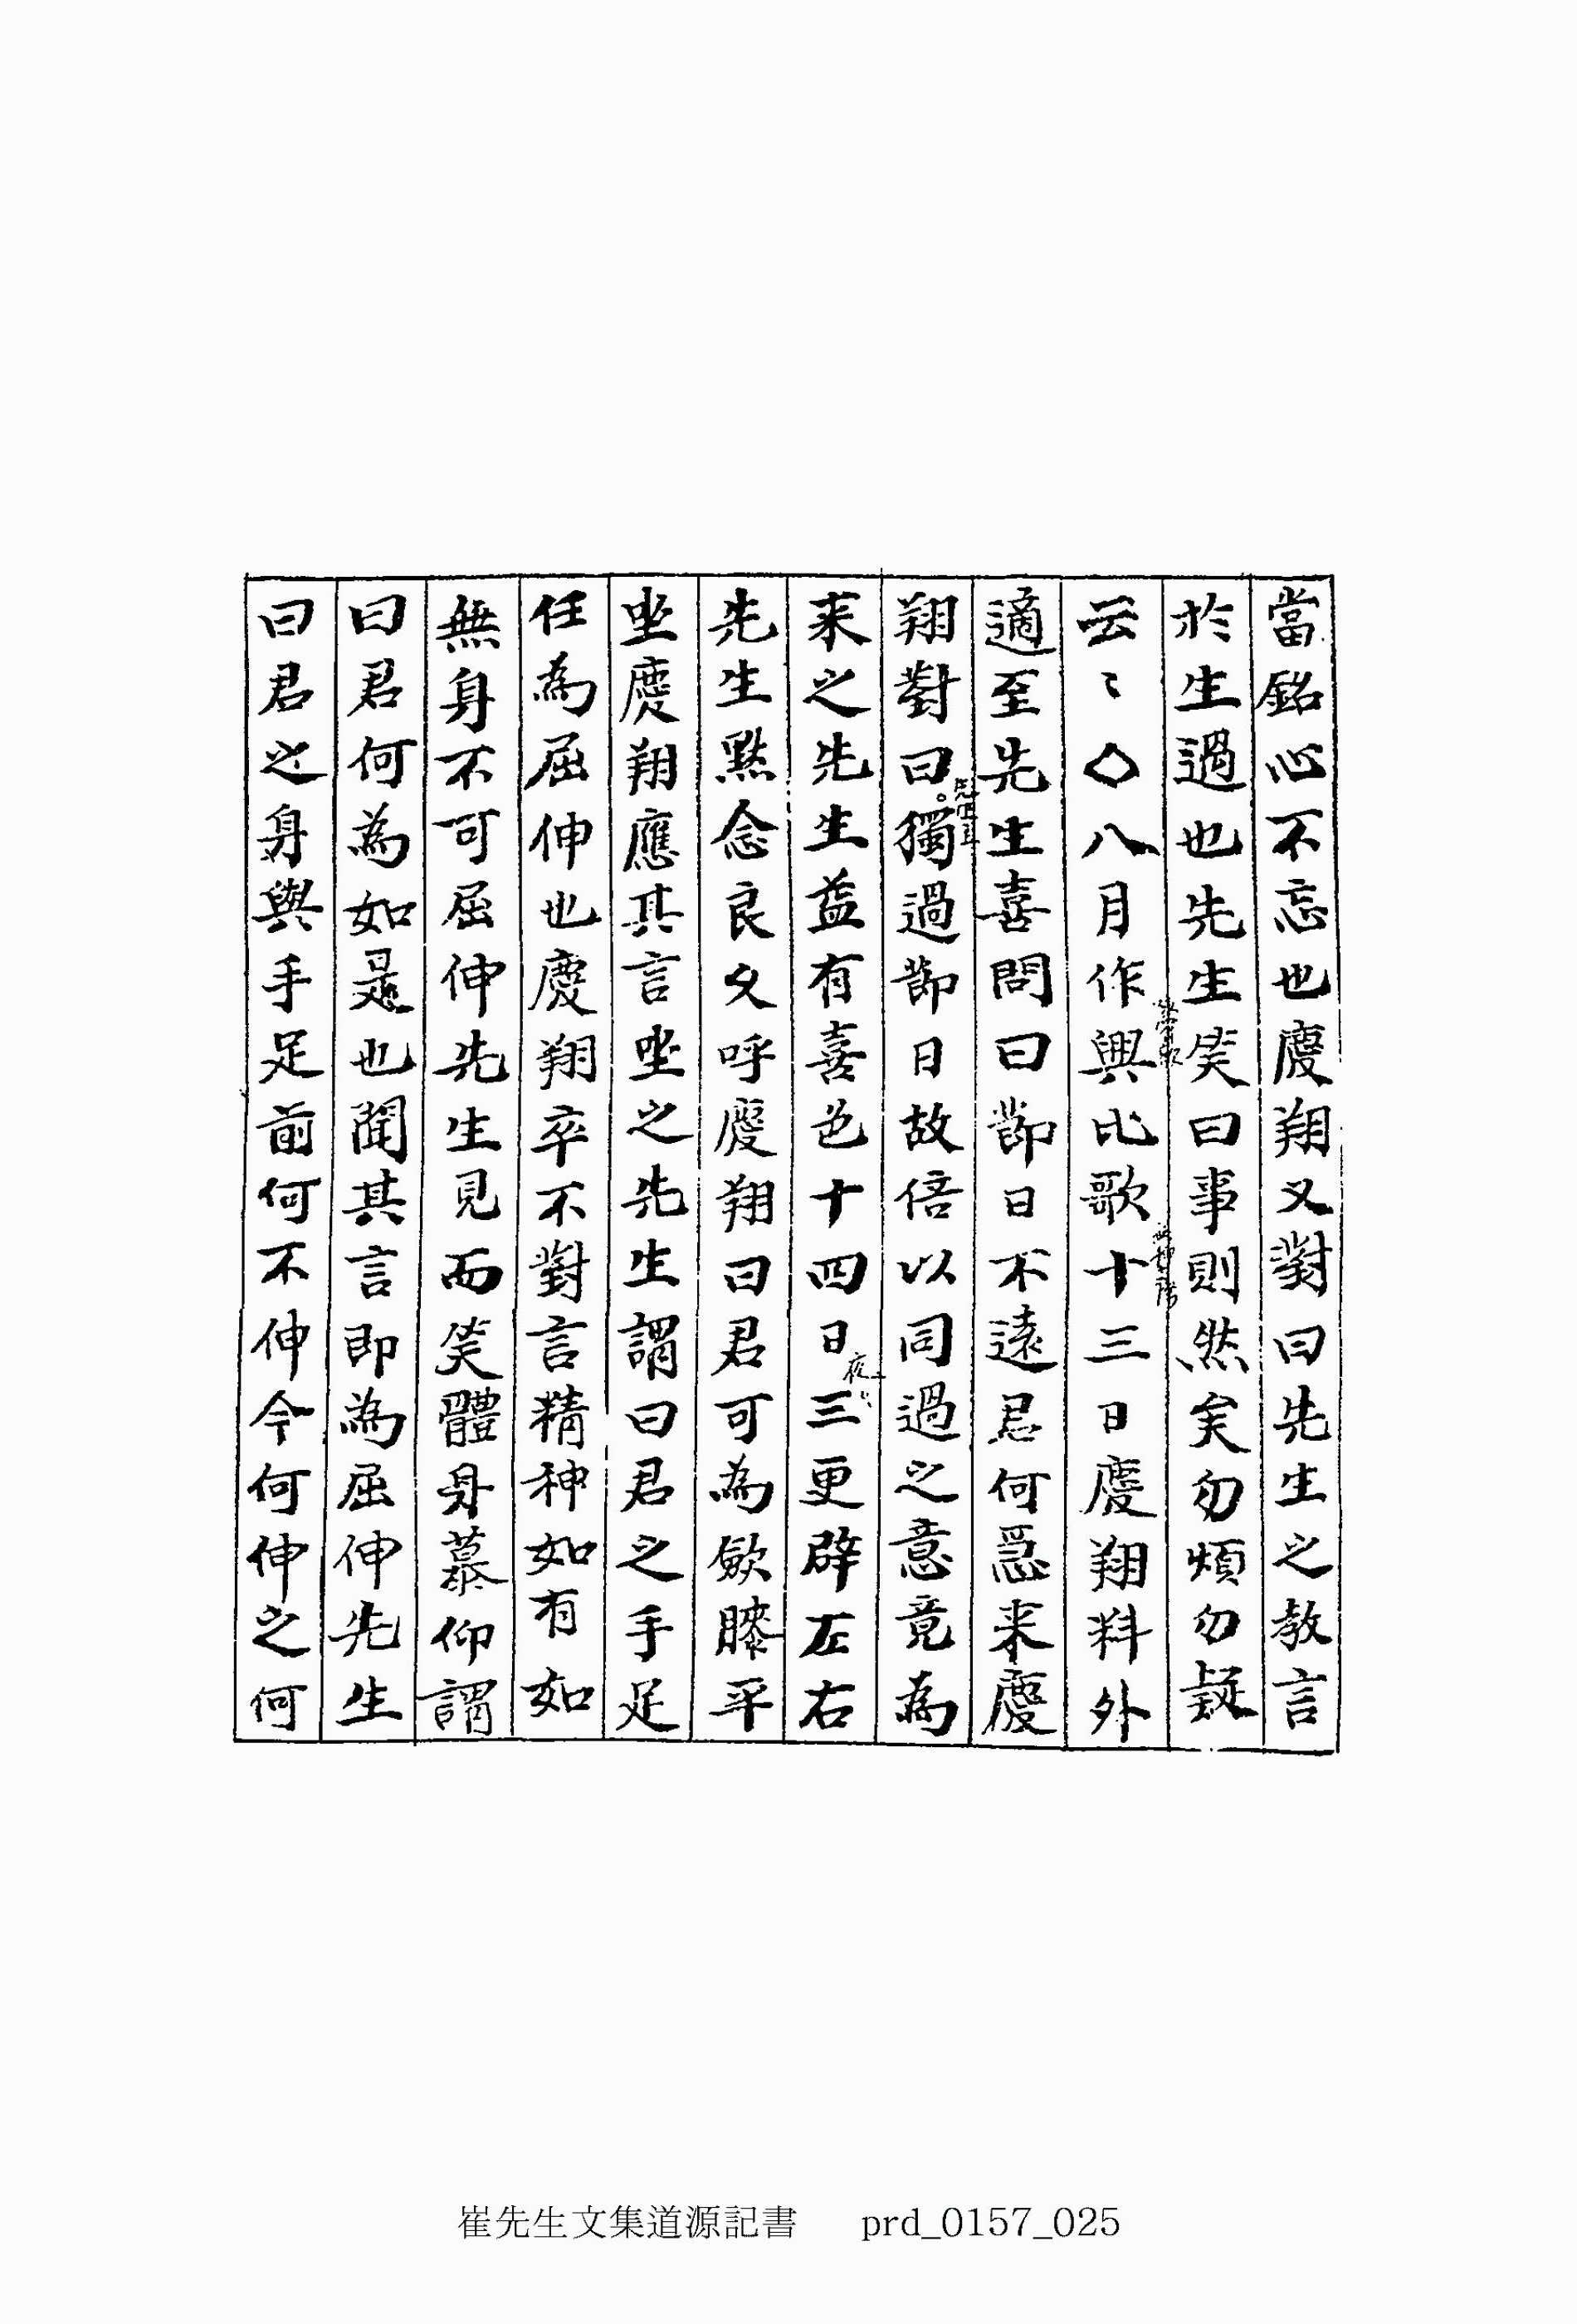 當銘心不忘也慶翔又對曰先生之教言
於生過也先生笑曰事則然矣勿煩勿疑
云〻◇八月作興比歌十三日慶翔料外
適至先生喜問曰節日不遠君何爲來慶
翔對曰獨過節日故倍以同過之意竟為
来之先生益有喜色十四日三更辟左右
先生黙念良久呼慶翔曰君可為歛膝平
坐慶翔應其言坐之先生謂曰君之手足
任為屈伸也慶翔卒不對言精神如有如
無身不可屈伸先生見而笑體身慕仰謂
曰君何為如是也聞其言即為屈伸先生
曰君之身與手足前何不伸今何伸之何
夜
崔先生文集道源記書 prd_0157_025